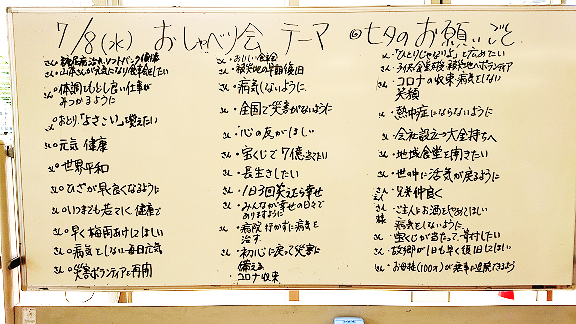 7/8(水) おしゃべり会 テーマ ◎七夕のお願いごと
さん○体調もよし良い仕事が
みつかるように
さん○おとり「よさこい」覚えたい
さん○元気 健康
○世界平和
さん○ひざが早く良くなるように
さん○いつまでも若々しく健康で
さん○早く梅雨あけてほしい
さん○病気をしない毎日元気
さん○災害ボランティアと再開
さん○おいしい食事会
さん○被災地の早期復旧
○病気しないように
さん○全国で災害がないように
さん○心の友がほしい
さん○宝くじで7億当てたい
さん○長生きしたい
さん○1日3回笑えたら幸せ
さん○みんなが幸せの日々で
ありますように
さん○病院行かずに病気を
治す
さん○初心に戻って災害に
備える
コロナ収束
○「ひとりじゃないよ」を広めたい
さん○子ども食堂支援・被災地のボランティア
さん○コロナの収束 病気をしない
笑顔
さん○熱中症にならないように
さん○会社設立の大金持ちへ
さん○地域食堂を開きたい
さん○世の中に活気が戻るように
さん○兄弟仲良く
○ご主人にお酒をやめてほしい
病気をしないように
さん○宝くじが当たって、寄付したい
さん○故郷が1日も早く復旧してほしい
さん○お母様(100才)が無事に退院できるよう